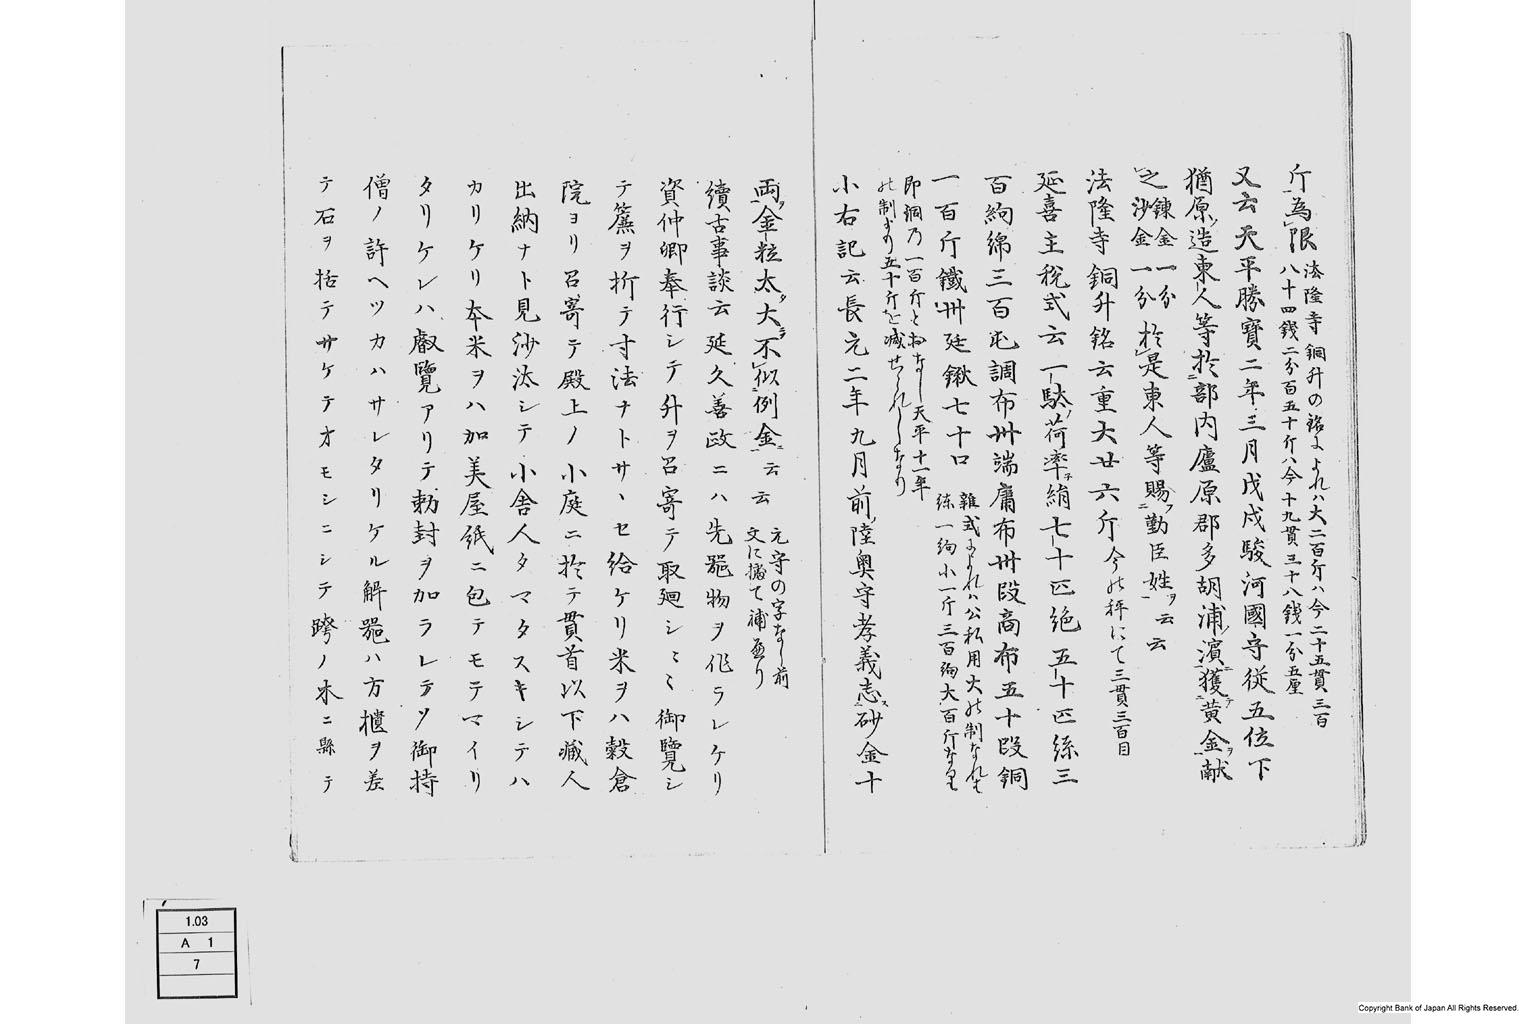 斤為限 法隆寺銅升の銘によれハ大二百斤ハ今二十五貫三百
八十四銭二分百五十斤ハ今十九貫三十八銭一分五厘
又云天平勝寳二年三月戊戌駿河國守従五位下
猶原造東人等於部内廬原郡多胡浦濱獲黄金ヲ献
之 錬金一分
沙金一分 於是東人等賜勤臣姓ヲ云云
法隆寺銅升銘云重大廿六斤 今の秤にて三貫三百目
延喜主税式云一駄荷率絹七十疋絁五十疋絲三
百絇綿三百屯調布卅端庸布卅段商布五十段銅
一百斤鐵卅廷鍬七十口 雜式によれハ公私用大の制なれと
綵一絇小一斤三百絇大百斤なり
即銅乃一百斤とおなし天平十一年
の制より五十斤を減せられしなり
小右記云長元二年九月前陸奥守孝義志砂金十
両金粒太大不似例金云云 元守の字なし前
文に據て補へり
續古事談云延久善政ニハ先噐物ヲ作ラレケリ
資仲卿奉行シテ升ヲ召寄テ取廻シミミ御覽シ
テ簾ヲ折テ寸法ナトサヽセ給ケリ米ヲハ穀倉
院ヨリ召寄テ殿上ノ小庭ニ於テ貫首以下藏人
出納ナト見沙汰シテ小舎人タマタスキシテハ
カリケリ本米ヲハ加美屋紙ニ包テモテマイリ
タリケレハ叡覽アリテ勅封ヲ加ラレテケリ御持
僧ノ許ヘツカハサレタリケル斛噐ハ方櫃ヲ差
テ石ヲ括テサケテオモシニシテ跨ノ木ニ縣テ
1.03
A 1
7
Copyright Bank of Japan All Rights Reserved.